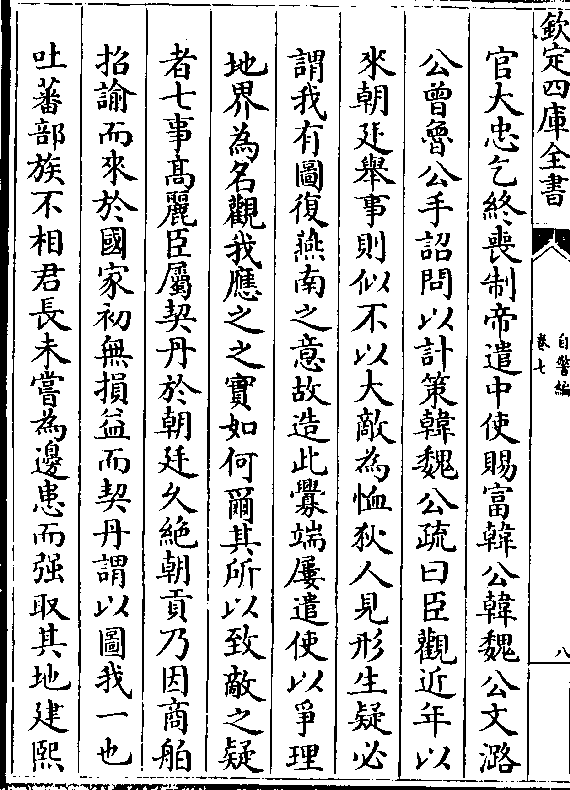 欽定四庫全書
自警編
卷七
八
官大忠乞終喪制帝遣中使賜富韓公韓魏公文潞
公曾魯公手詔問以計策韓魏公疏曰臣觀近年以
來朝廷舉事則似不以大敵為恤狄人見形生疑必
謂我有圖復燕南之意故造此釁端屢遣使以爭理
地界為名觀我應之之實如何爾其所以致敵之疑
者七事髙麗臣屬契丹於朝廷久絶朝貢乃因商舶
招諭而來於國家初無損益而契丹謂以圖我一也
吐蕃部族不相君長未嘗為邊患而强取其地建熙